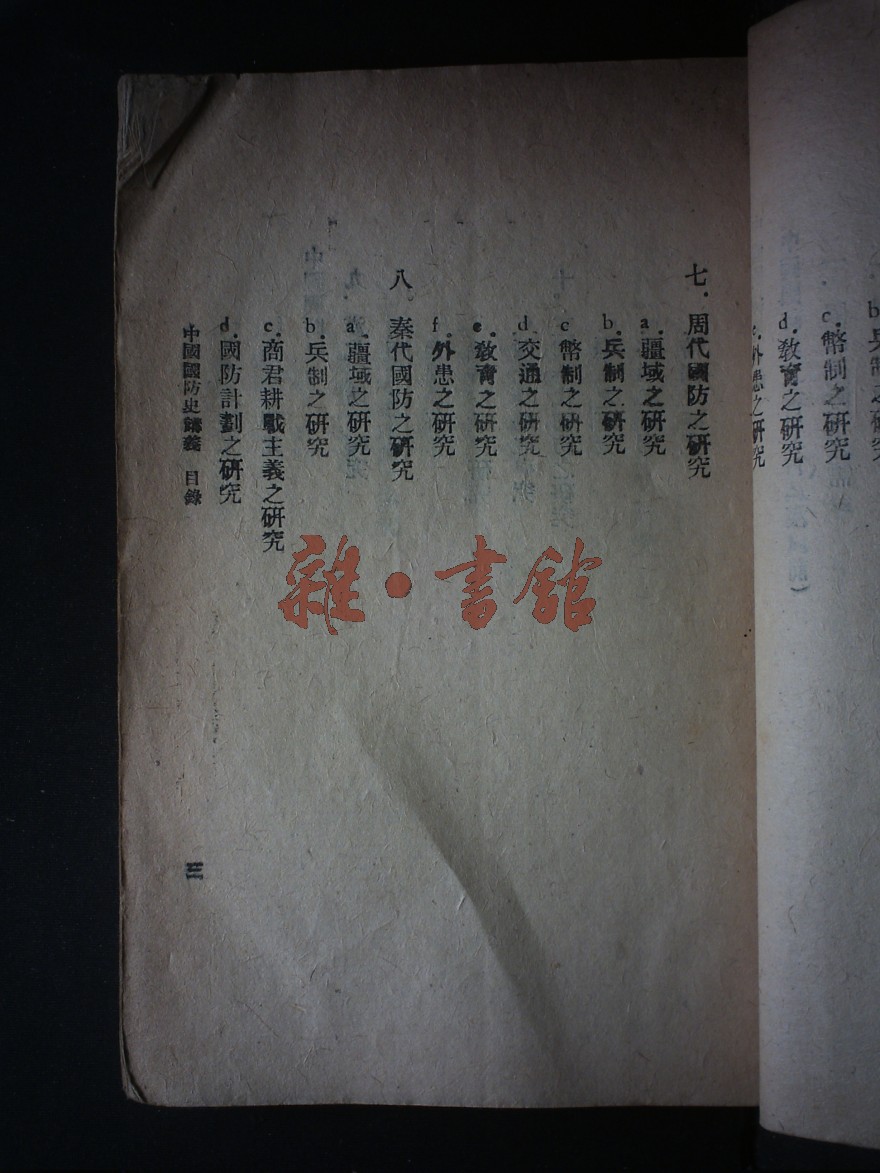 b.兵制之研究
c.幣制之研究
d.教育之研究
e.外患之研究
七.周代國防之研究
a.疆域之研究
b.兵制之研究
c.幣制之研究
d.交通之研究
e.教育之研究
f.外患之研究
八.秦代國防之研究
a.疆域之研究
b.兵制之研究
c.商君耕戰主義之研究
d.國防計劃之研究
中國國防史講義 目錄
三
雜·書館